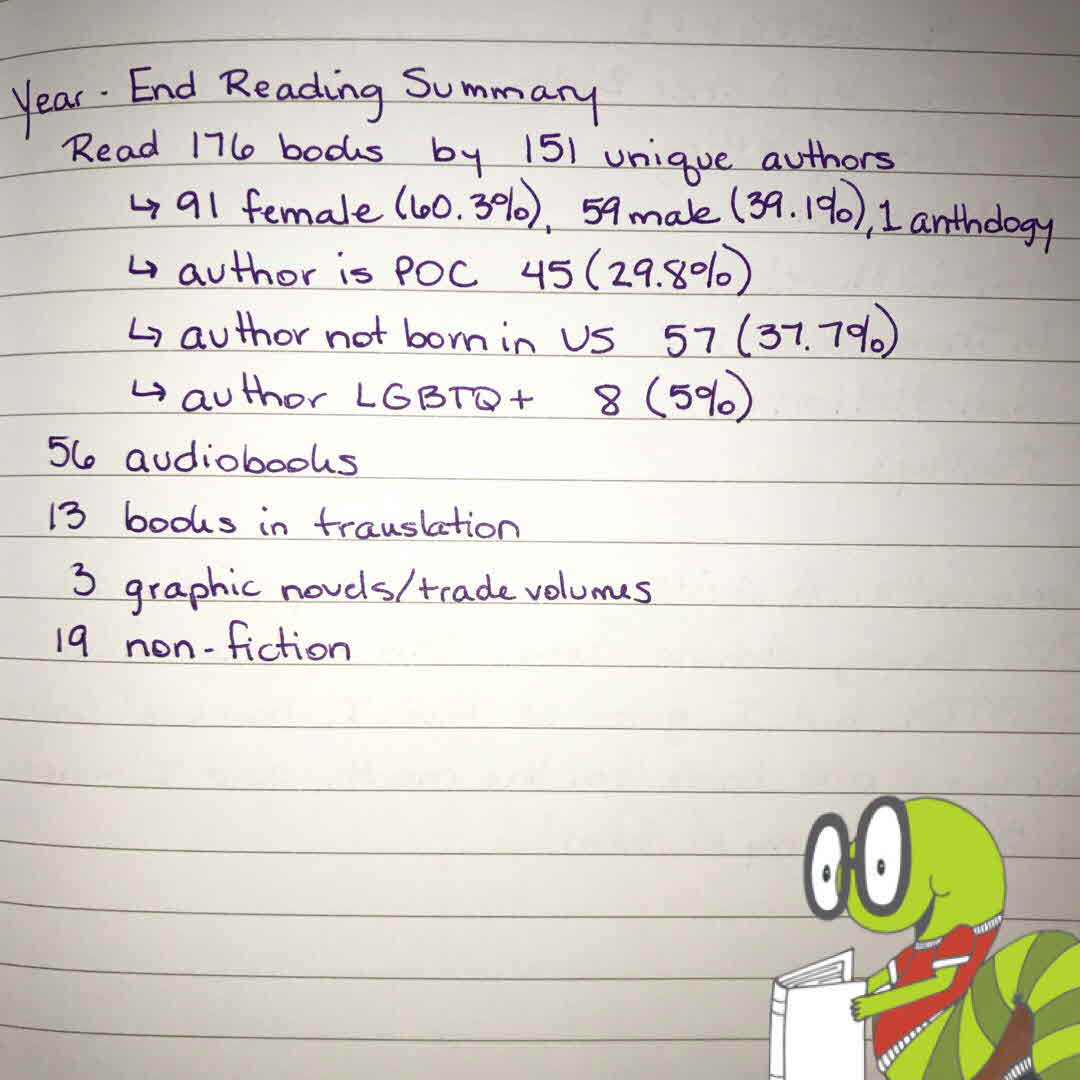 Year-End Reading Summary
Read 176 books by 151 unique authors
↳ 91 female (60.3%), 59 male (39.1%), 1 anthology
↳ author is POC 45 (29.8%)
↳ author not born in US 57 (37.7%)
↳ author LGBTQ+ 8 (5%)
56 audiobooks
13 books in translation
3 graphic novels/trade volumes
19 non-fiction